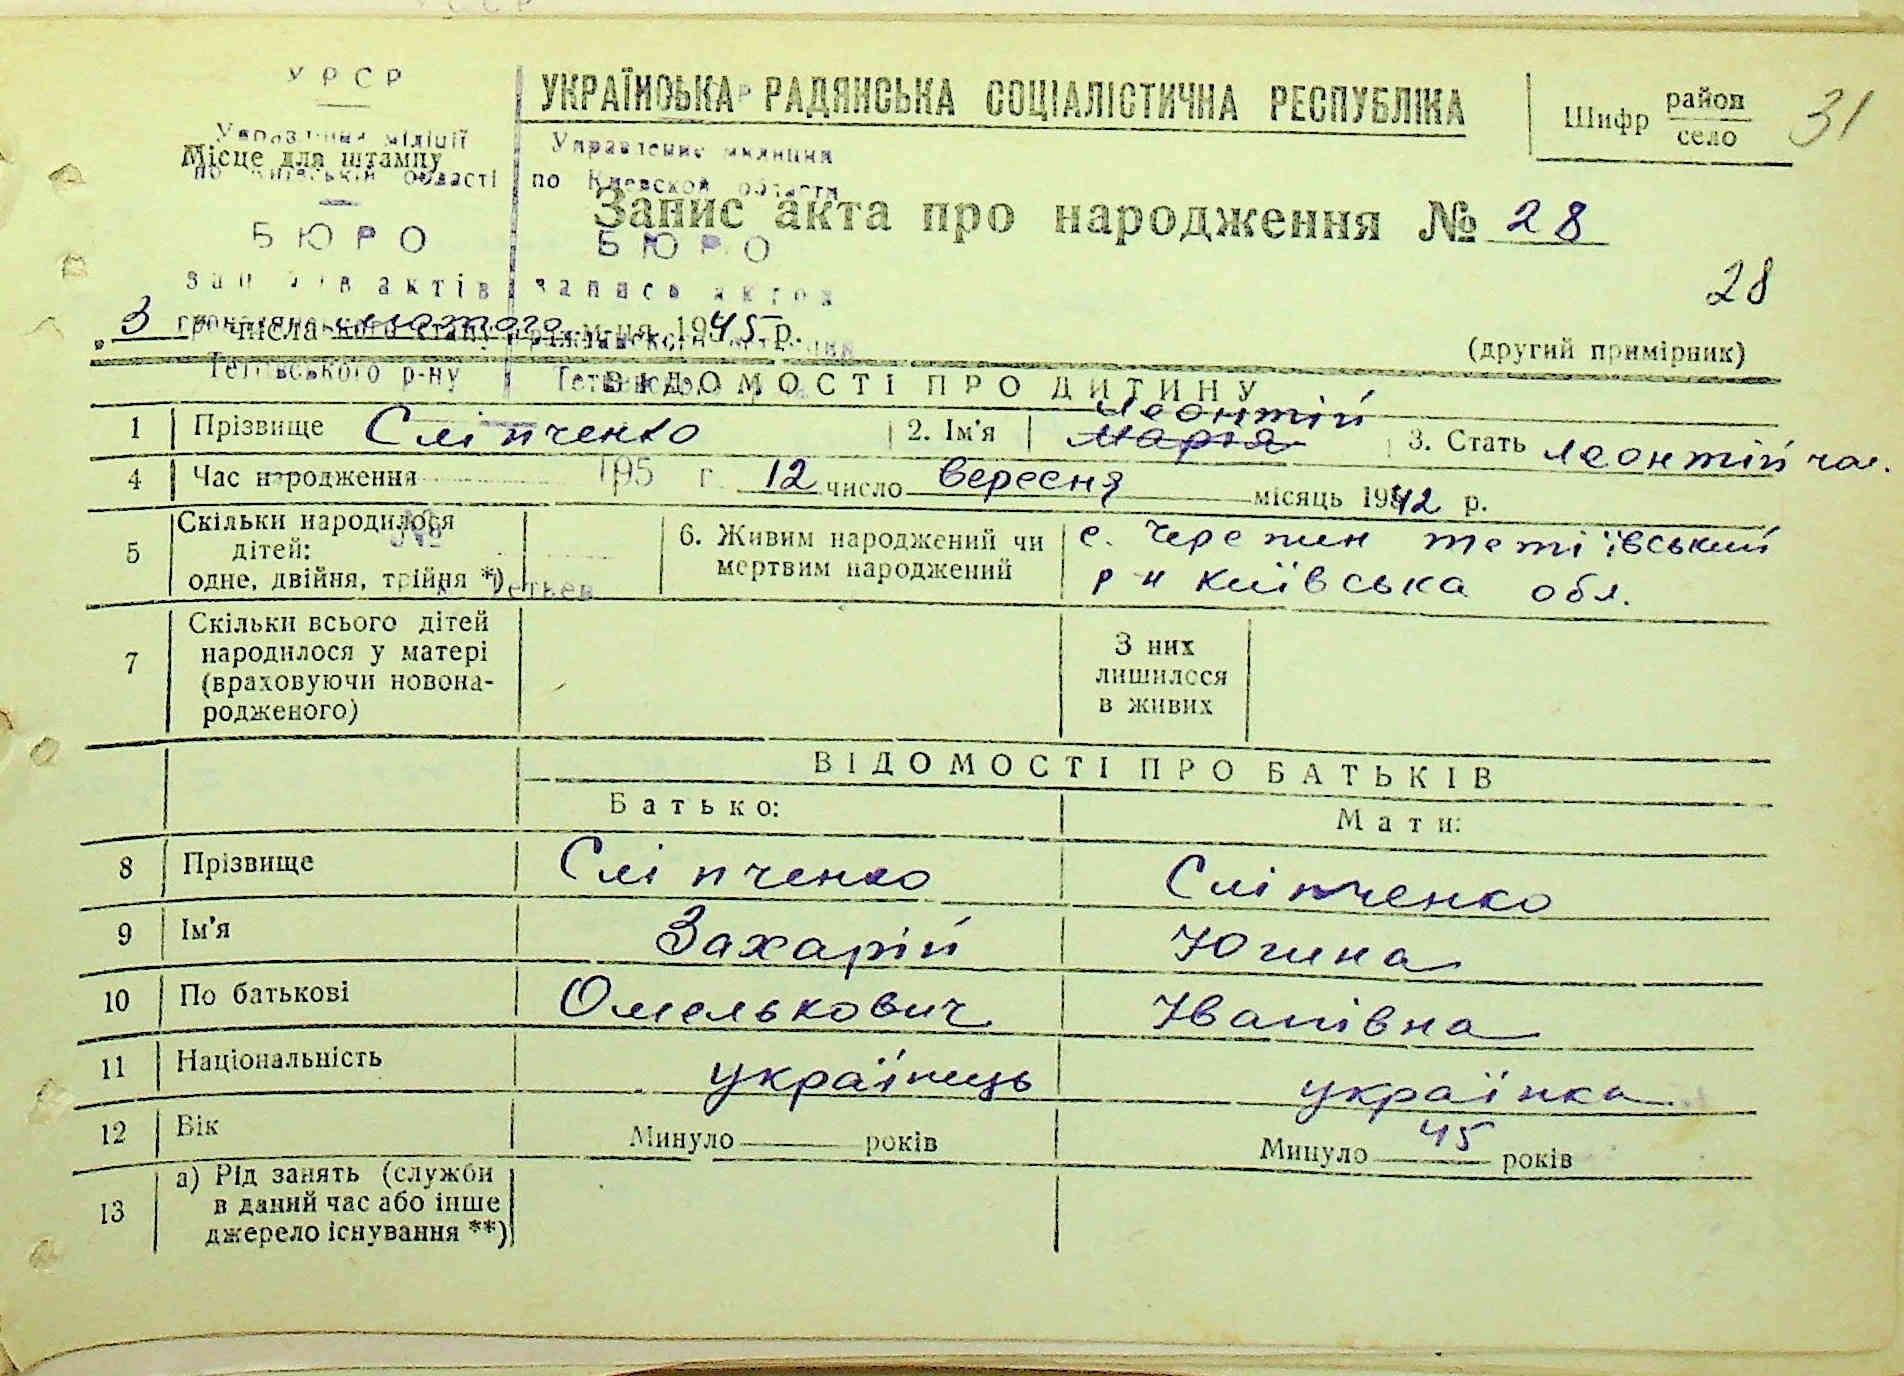 УРСР
УКРАЇНСЬКА РАДЯНСЬКА СОЦІАЛІСТИЧНА РЕСПУБЛІКА
Шифр район
село
31
Управління міліції
Управление милиции
Місце для штампу
по Київській області
по Киевской области
Запис акта про народження № 28
БЮРО
БЮРО
записів актів
записи актов
28
3 числа лютого м-ця 1945 р.
(другий примірник)
Тетіївського р-ну
ВІДОМОСТІ ПРО ДИТИНУ
Леонтій
1 Прізвище Сліпченко 2. Ім'я Марія 3. Стать Леонтій чол.
4 Час народження 195 г. 12 число Вересня місяць 1942 р.
5 Скільки народилося дітей: одне, двійня, трійня *)
№
6. Живим народжений чи мертвим народжений
с. Черепин Тетіївський
р-н Київська обл.
7 Скільки всього дітей народилося у матері (враховуючи новонародженого)
З них лишилося в живих
ВІДОМОСТІ ПРО БАТЬКІВ
Батько:
Мати:
8 Прізвище Сліпченко Сліпченко
9 Ім'я Захарій Югина
10 По батькові Омелькович Іванівна
11 Національність українець українка
12 Вік Минуло років Минуло 45 років
13 а) Рід занять (служби в даний час або інше джерело існування **)